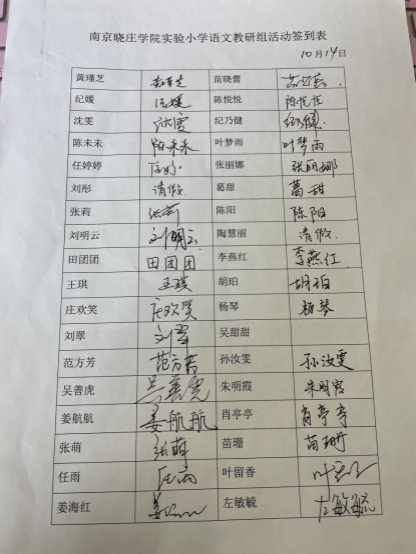 南京晓庄学院实验小学语文教研组活动签到表
10月14日
黄瑾芝 苗晓蕾
纪媛 纪媛 陈悦悦 陈悦悦
沈雯 沈雯 纪乃健
陈未未 陈未未 叶梦雨 叶梦雨
任婷婷 张丽娜 张丽娜
刘彤 请假 葛甜 葛甜
张莉 张莉 陈阳 陈阳
刘明云 刘明云 陶慧丽 请假
田团团 田团团 李燕红 李燕红
王琪 王琪 胡珀 胡珀
庄欢笑 庄欢笑 杨琴 杨琴
刘翠 刘翠 吴甜甜
范方芳 范方芳 孙汝雯 孙汝雯
吴善虎 吴善虎 朱明霞 朱明霞
姜航航 姜航航 肖亭亭 肖亭亭
张萌 张萌 苗珊 苗珊
任雨 任雨 叶留香
姜海红 左敏毓 左敏毓